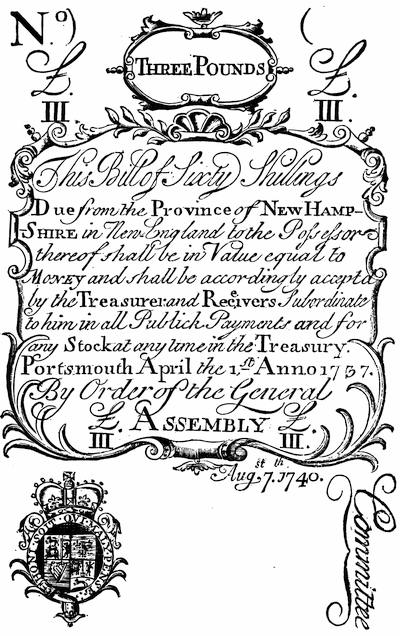 N.º)
THREE POUNDS
(
£.
III
£.
III.
This Bill of Sixty Shillings
Due from the Province of NEW HAMP-
SHIRE in New England to the Possessor
thereof shall be in Value equal to
Money and shall be accordingly accepted
by the Treasurer and Receivers Subordinate
to him in all Publick Payments and for
any Stock at any time in the Treasury.
Portsmouth April the 1.st Anno 1737.
By Order of the General
£. ASSEMBLY £.
III III.
Aug.st 7.th 1740.
HONI SOIT QVI MAL Y PENSE
Committee